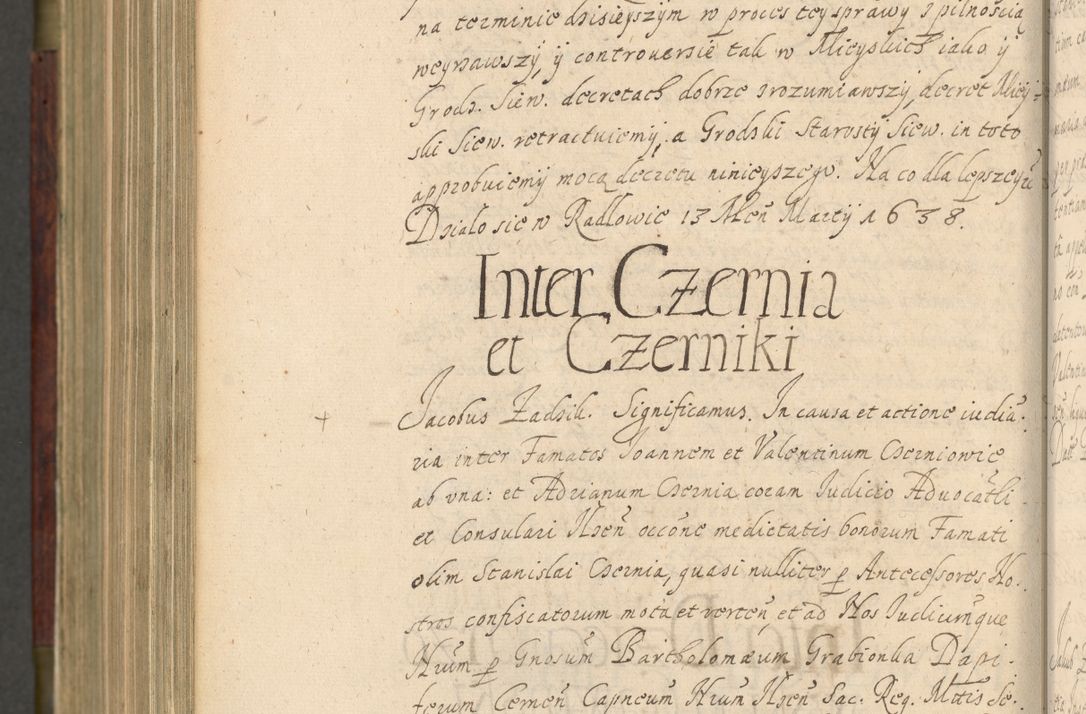 na terminie dzisieyszym w proces tey sprawy z pilnością
weyrzawszÿ, ÿ controuersie tak w Mieyskich iako ÿ
Grods. Siew. decretach dobrze zrozumiawszÿ, decret Miey=
ski Siew. retractuiemÿ, a Grodski Starostÿ Siew. in toto
approbuiemÿ mocą decretu ninieyszego. Na co dla lepszey
Działo sie w Radłowie 13 Men̄ Martÿ 1638.
Inter Czernia
et Czerniki
Jacobus Zadzik. Significamus. In causa et actione iudia:
ria inter Famatos Joannem et Valentinum Czerniowie
ab vna: et Adrianum Czernia coram Judicio Aduocatli
et Consulari Nsen̄ occōne medietatis bonorum Famati
olim Stanislai Czernia, quasi nulliter p Antecessores No.
stros confiscatorum mota et verten̄, et ad Nos Judiciumque
Nrūm p Gnosum Bartholomæum Grabionka Dapi.
ferum Cernen̄ Capneum Nrum Nsen̄ Sac. Reg. Mttis Se.